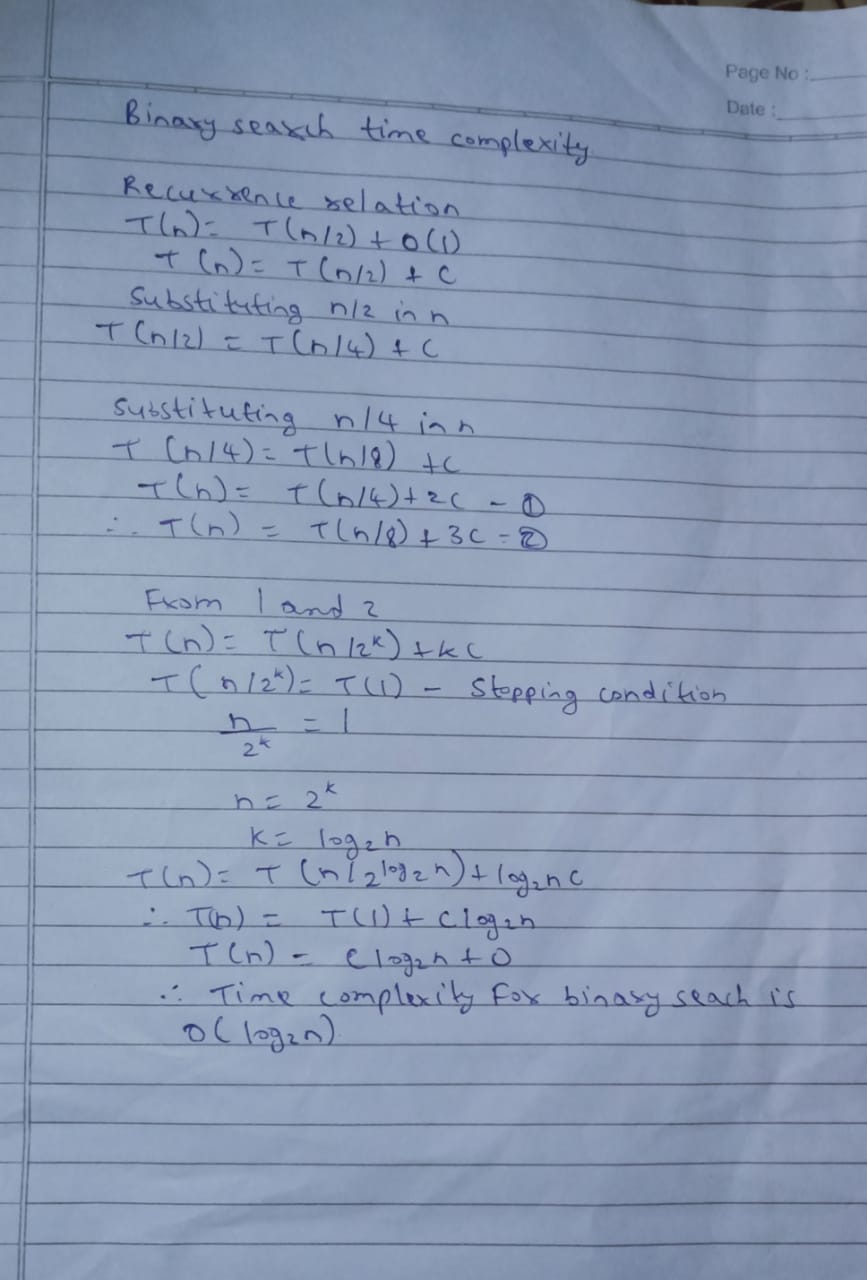 Page No :
Date :
Binary search time complexity
Recurrence relation
T(n) = T(n/2) + O(1)
T(n) = T(n/2) + C
Substituting n/2 in n
T(n/2) = T(n/4) + C
Substituting n/4 in n
T(n/4) = T(n/8) + C
T(n) = T(n/4) + 2C - ①
∴ T(n) = T(n/8) + 3C - ②
From 1 and 2
T(n) = T(n/2ᵏ) + kC
T(n/2ᵏ) = T(1) - Stopping condition
n/2ᵏ = 1
n = 2ᵏ
k = log₂n
T(n) = T(n/2^log₂n) + log₂n C
∴ T(n) = T(1) + C log₂n
T(n) = C log₂n + O
∴ Time complexity for binary seach is
O(log₂n).